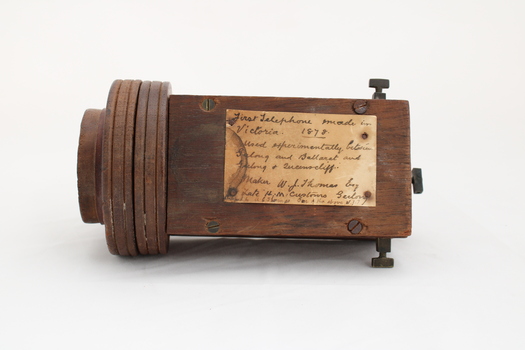 First Telephone made in
Victoria 1878
Used experimentally between
Geelong and Ballarat and
Geelong & Queenscliff.
Maker W. J. Thomas by
H. M. Customs Geelong